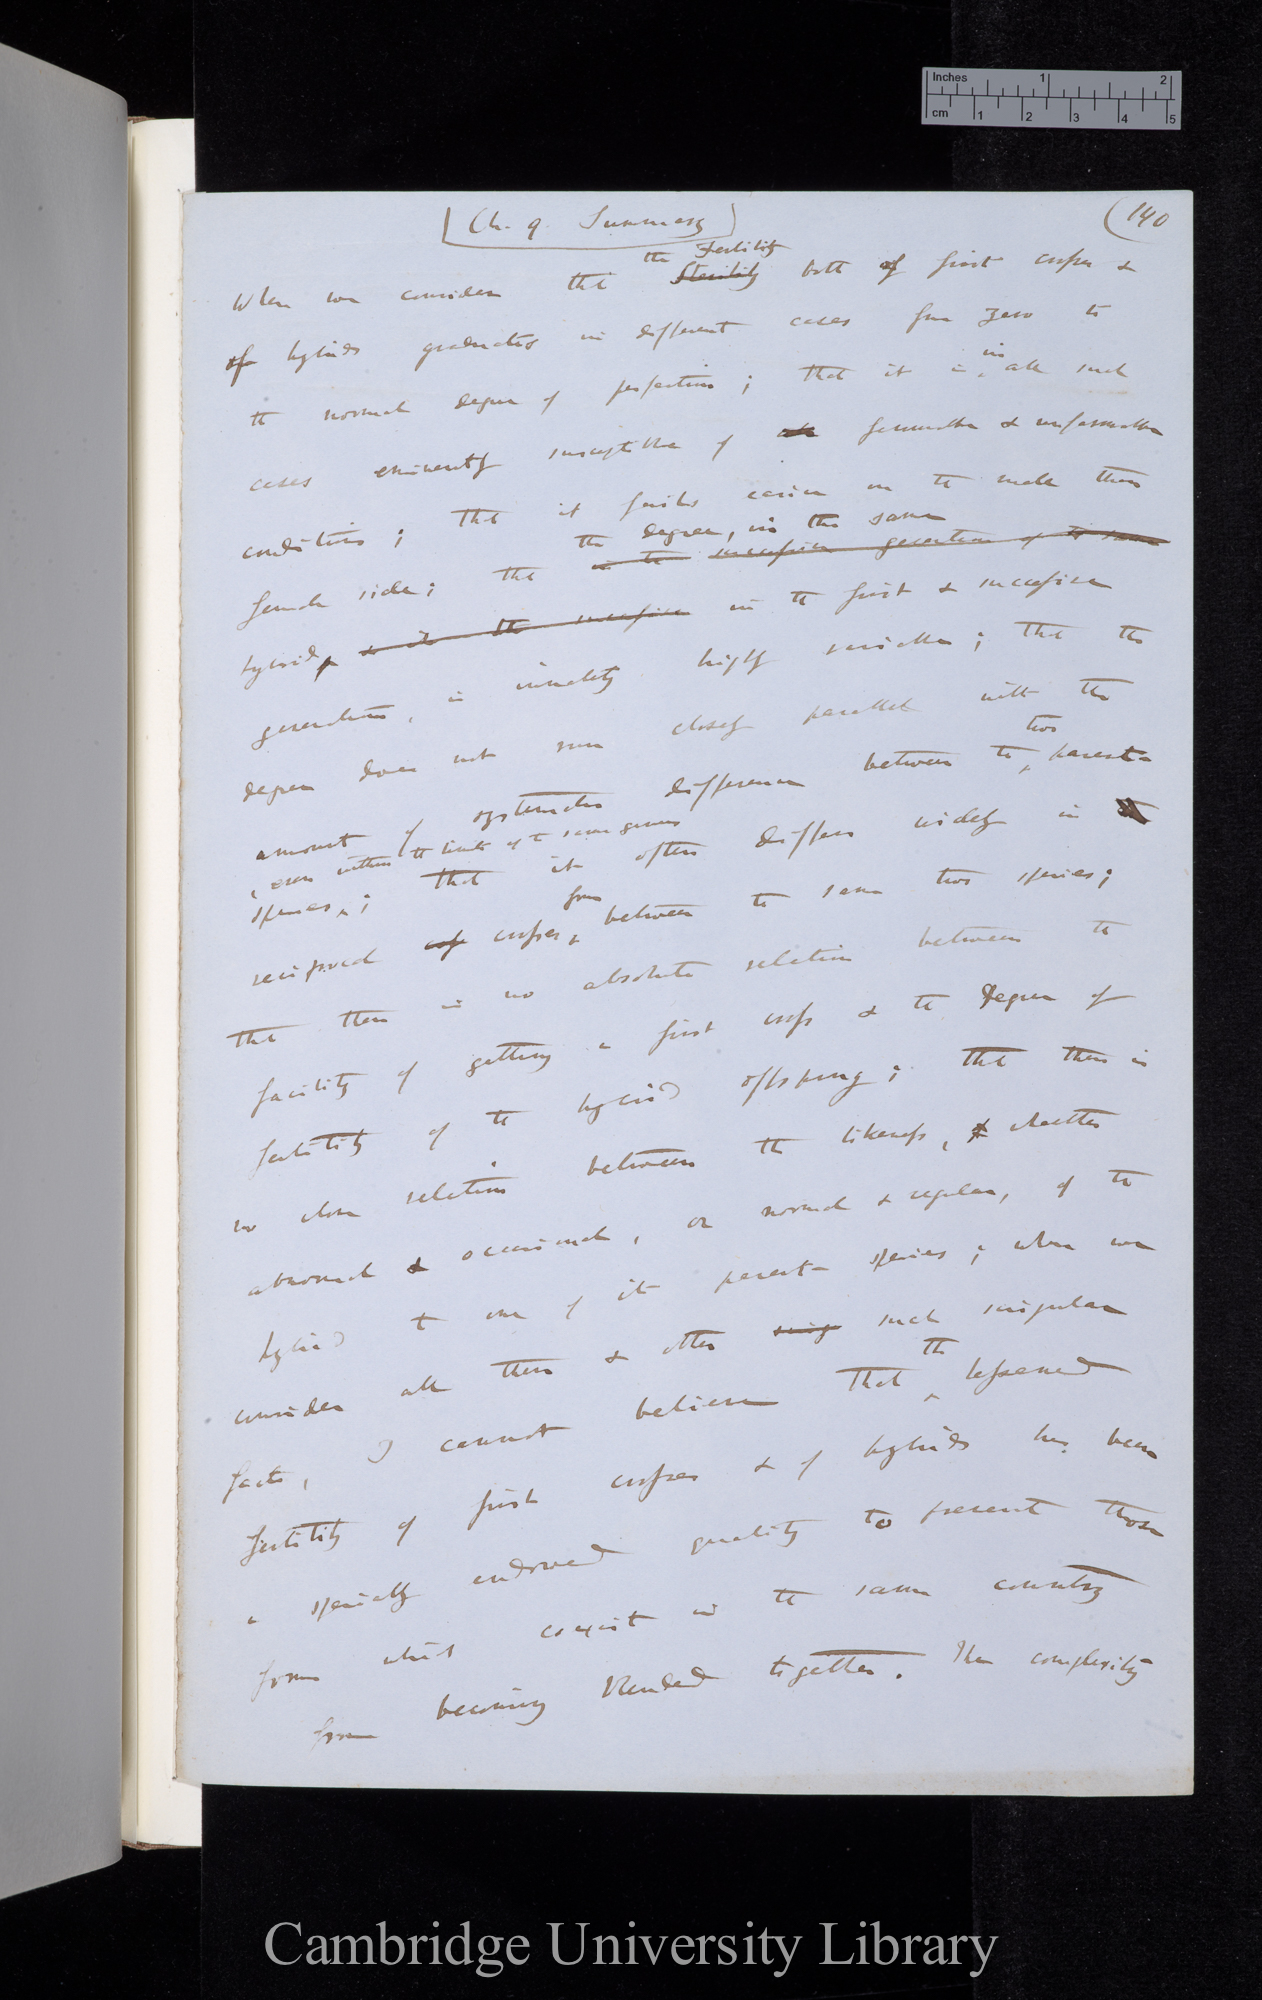 Inches 1 2
cm 1 2 3 4 5
Ch. 9. Summary
(140
the Fertility
When we consider that Sterility both of first crosses &
of hybrids graduates in different cases from zero to
in
the normal degree of perfection; that it is all such
cases eminently susceptible of favourable & unfavourable
conditions; that it
the degree, in the same
female side; that in the successive generations of the same
hybrid, & in the successive in the first & successive
generations, is innately highly variable; that the
degree does not run closely parallel with the
two
amount of systematic difference between the parent-
, even within the limits of the same genus
species,; that it often differs widely in
from
reciprocal crosses between the same two species;
that there is no absolute relation between the
facility of getting a first cross & the degree of
fertility of the hybrid offspring; that there is
no close relation between the likeness, whether
abnormal & occasional, or normal & regular, of the
hybrid to one of its parent species; when we
consider all these & other such singular
the
facts, I cannot believe that lessened
fertility of first crosses & of hybrids has been
a specially endowed quality to prevent those
forms which coexist in the same country
from becoming blended together. The complexity
Cambridge University Library